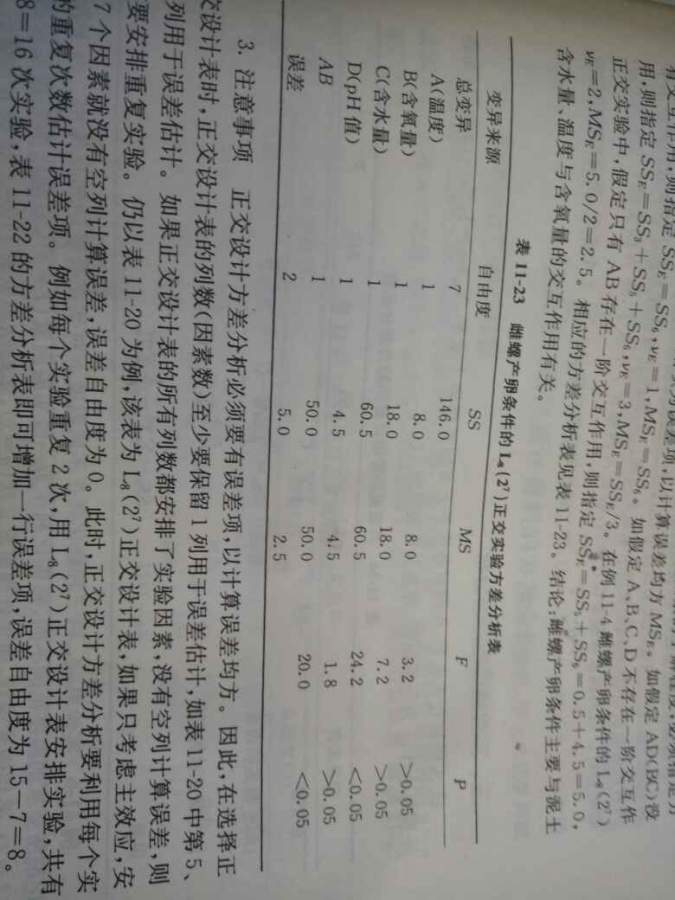 误差项,以计算误差均方 MS_E。如假定 AD(BC)没
有交互作用,则指定 SS_E=SS₆,ν_E=1,MS_E=SS₆。如假定 A、B、C、D 不存在一阶交互作
用,则指定 SS_E=SS₃+SS₅+SS₆,ν_E=3,MS_E=SS_E/3。在例 11-4 雌螺产卵条件的 L₈(2⁷)
正交实验中,假定只有 AB 存在一阶交互作用,则指定 SS_E=SS₅+SS₆=0.5+4.5=5.0,
ν_E=2,MS_E=5.0/2=2.5。相应的方差分析表见表 11-23。结论:雌螺产卵条件主要与泥土
含水量、温度与含氧量的交互作用有关。
表 11-23 雌螺产卵条件的 L₈(2⁷)正交实验方差分析表
变异来源 自由度 SS MS F P
总变异 7 146.0
A(温度) 1 8.0 8.0 3.2 >0.05
B(含氧量) 1 18.0 18.0 7.2 >0.05
C(含水量) 1 60.5 60.5 24.2 <0.05
D(pH 值) 1 4.5 4.5 1.8 >0.05
AB 1 50.0 50.0 20.0 <0.05
误差 2 5.0 2.5
3. 注意事项 正交设计方差分析必须要有误差项,以计算误差均方。因此,在选择正
交设计表时,正交设计表的列数(因素数)至少要保留 1 列用于误差估计,如表 11-20 中第 5、
列用于误差估计。如果正交设计表的所有列数都安排了实验因素,没有空列计算误差,则
要安排重复实验。仍以表 11-20 为例,该表为 L₈(2⁷)正交设计表,如果只考虑主效应,安
7 个因素就没有空列计算误差,误差自由度为 0。此时,正交设计方差分析要利用每个实
的重复次数估计误差项。例如每个实验重复 2 次,用 L₈(2⁷)正交设计表安排实验,共有
8=16 次实验,表 11-22 的方差分析表即可增加一行误差项,误差自由度为 15-7=8。